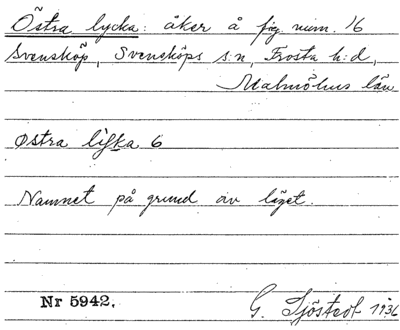 Östra lycka: åker å fig num. 16
Svensköp, Svensköps s:n, Frosta h:d,
Malmöhus län
østra lykka 6
Namnet på grund av läget.
Nr 5942. G. Sjöstedt 1936